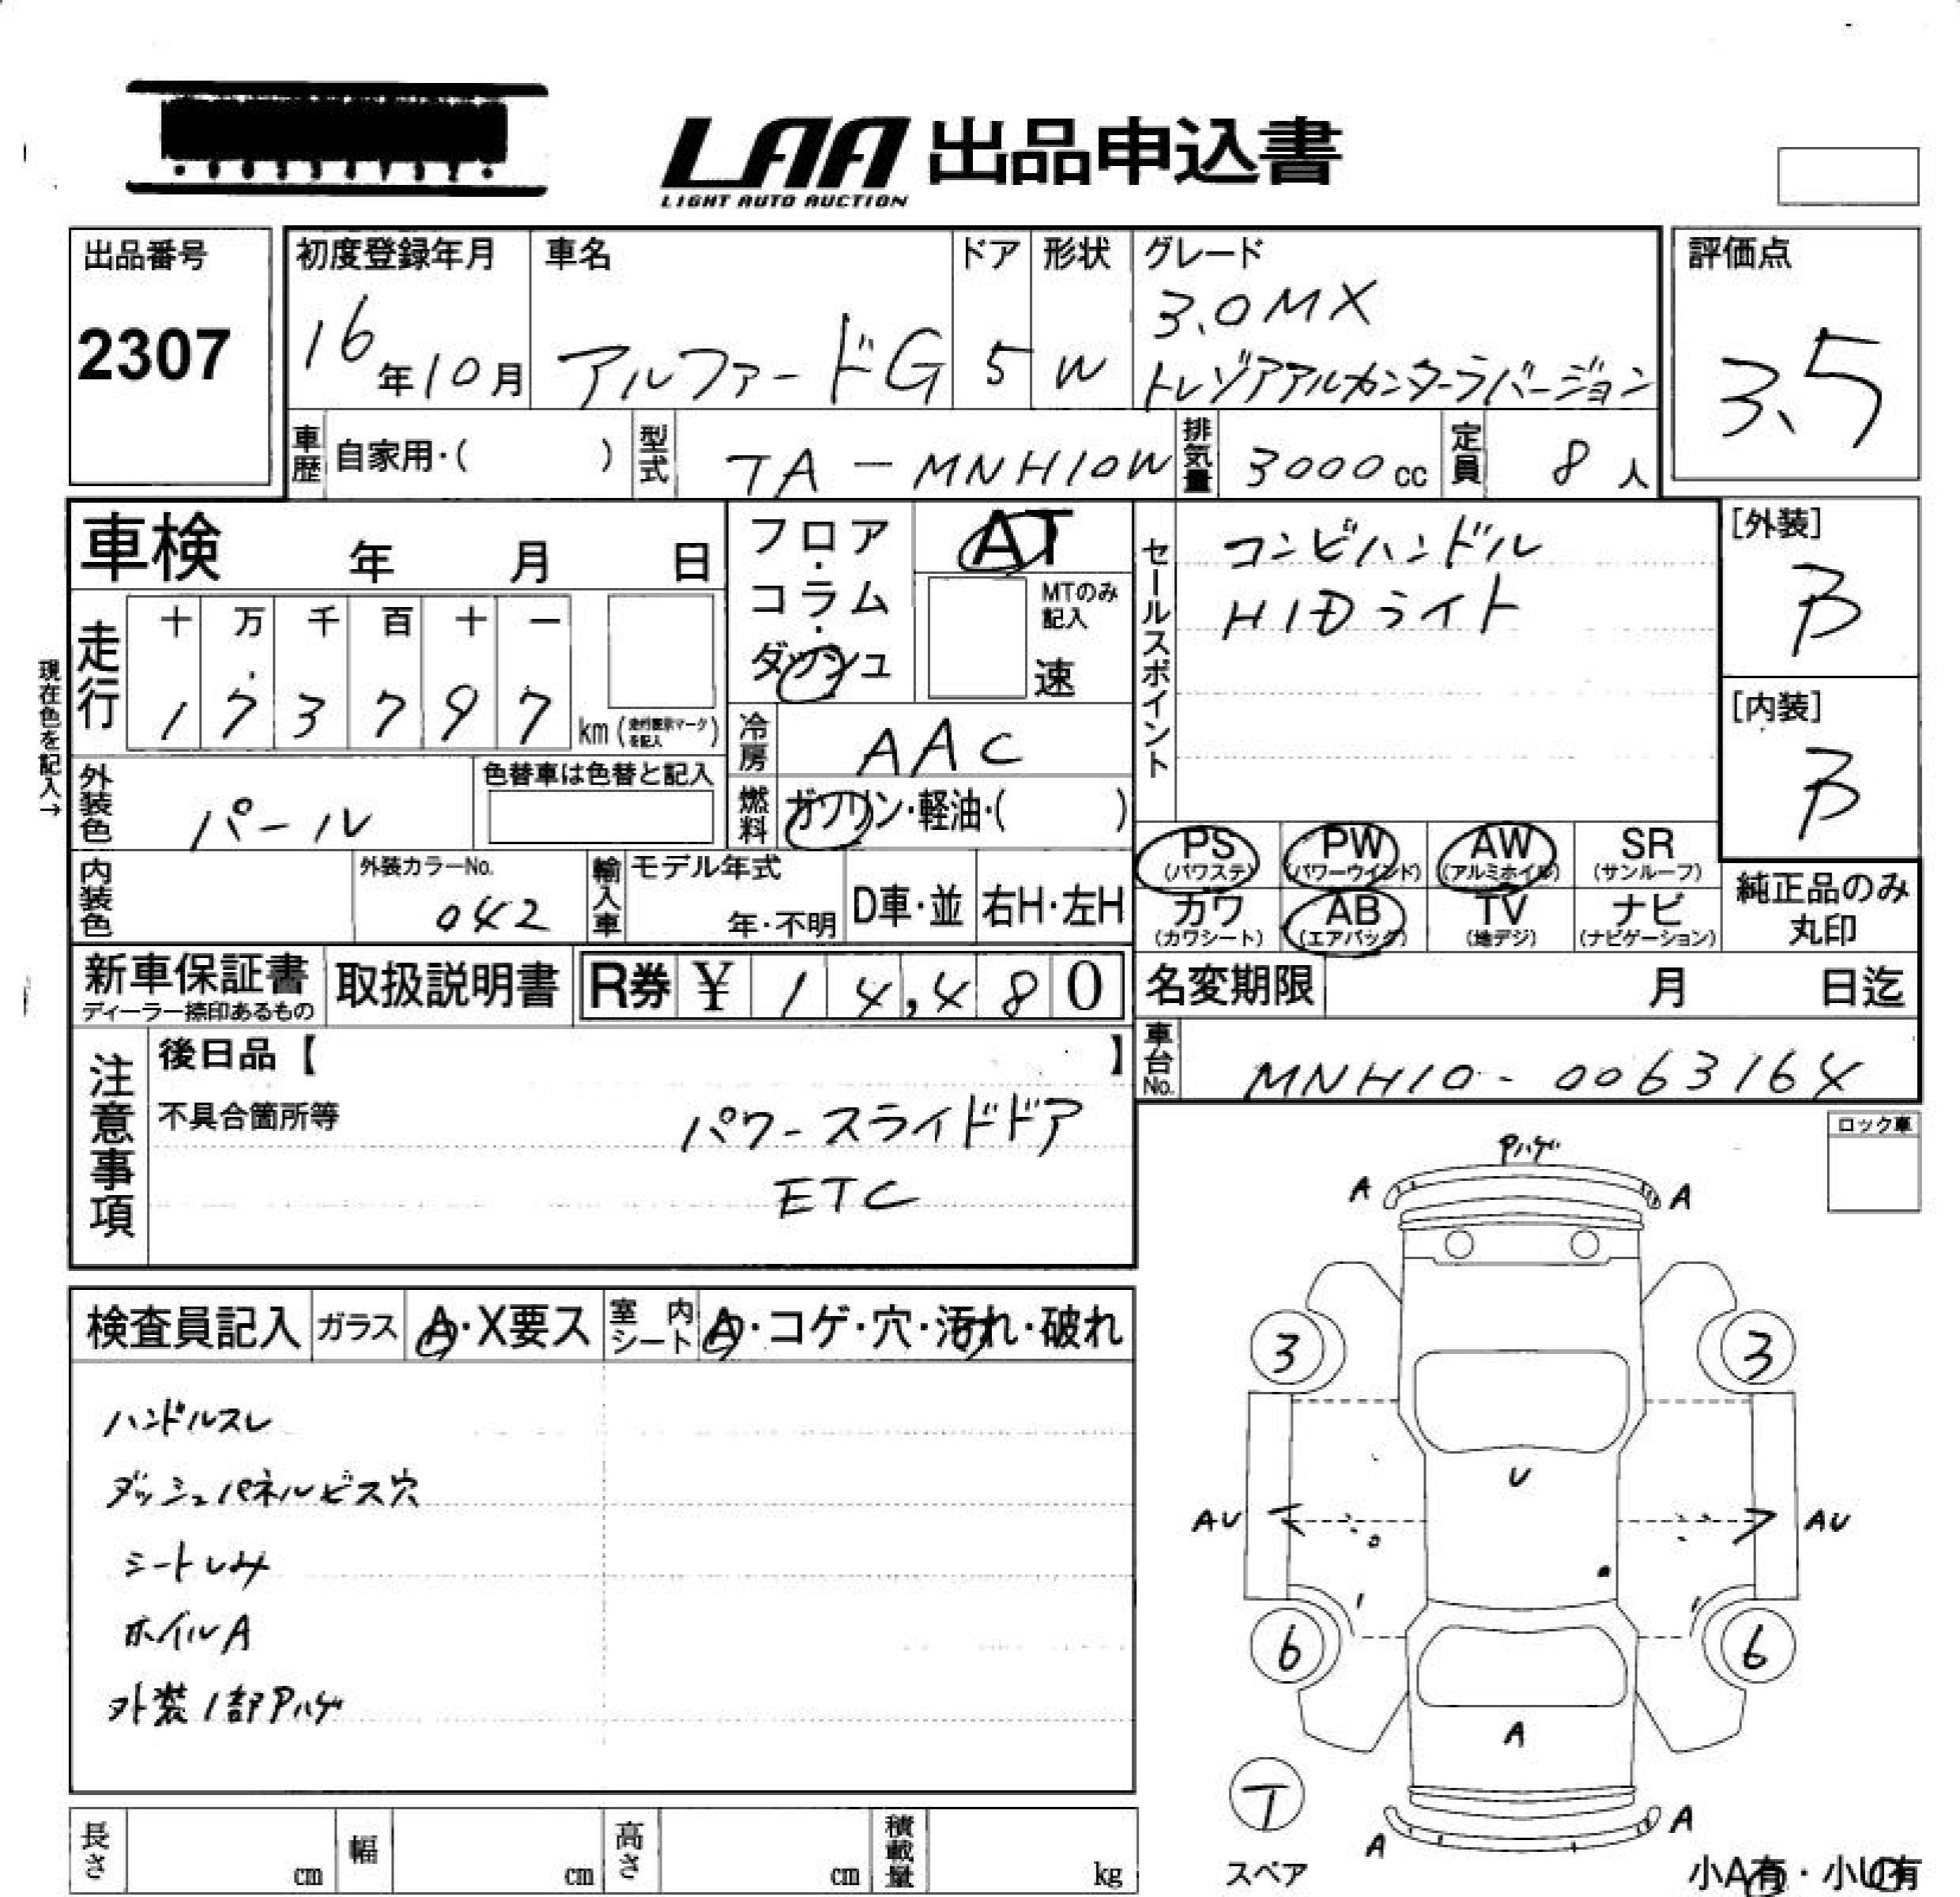 LAA 出品申込書
LIGHT AUTO AUCTION
出品番号
2307
初度登録年月
16年10月
車名
アルファードG
ドア
5
形状
W
グレード
3.0MX
トレゾアアルカンターラバージョン
評価点
3.5
車歴 自家用・( )
型式 TA-MNH10W
排気量 3000cc
定員 8人
車検 年 月 日
フロア・コラム・ダッシュ
AT
MTのみ記入
速
セールスポイント
コンビハンドル
HIDライト
[外装]
B
[内装]
B
現在色を記入→
走行
十 万 千 百 十 一
1 7 3 7 9 7 km
冷房 AAC
燃料 ガソリン・軽油・( )
外装色 パール
色替車は色替と記入
内装色
外装カラーNo.
042
輸入車
モデル年式
年・不明
D車・並
右H・左H
PS (パワステ)
PW (パワーウインド)
AW (アルミホイル)
SR (サンルーフ)
カワ (カワシート)
AB (エアバッグ)
TV (地デジ)
ナビ (ナビゲーション)
純正品のみ
丸印
新車保証書
ディーラー捺印あるもの
取扱説明書
R券 ¥ 14,480
名変期限 月 日迄
車台No. MNH10-0063164
注意事項
後日品【 】
不具合箇所等
パワースライドドア
ETC
ロック車
検査員記入
ガラス A・X要ス
室内シート A・コゲ・穴・汚れ・破れ
ハンドルスレ
ダッシュパネルビス穴
シートしみ
ホイルA
外装1部Pハゲ
Pハゲ
A A
3 3
U
AU AU
6 6
A
T
スペア
A A
小A有・小U有
長さ cm
幅 cm
高さ cm
積載量 kg